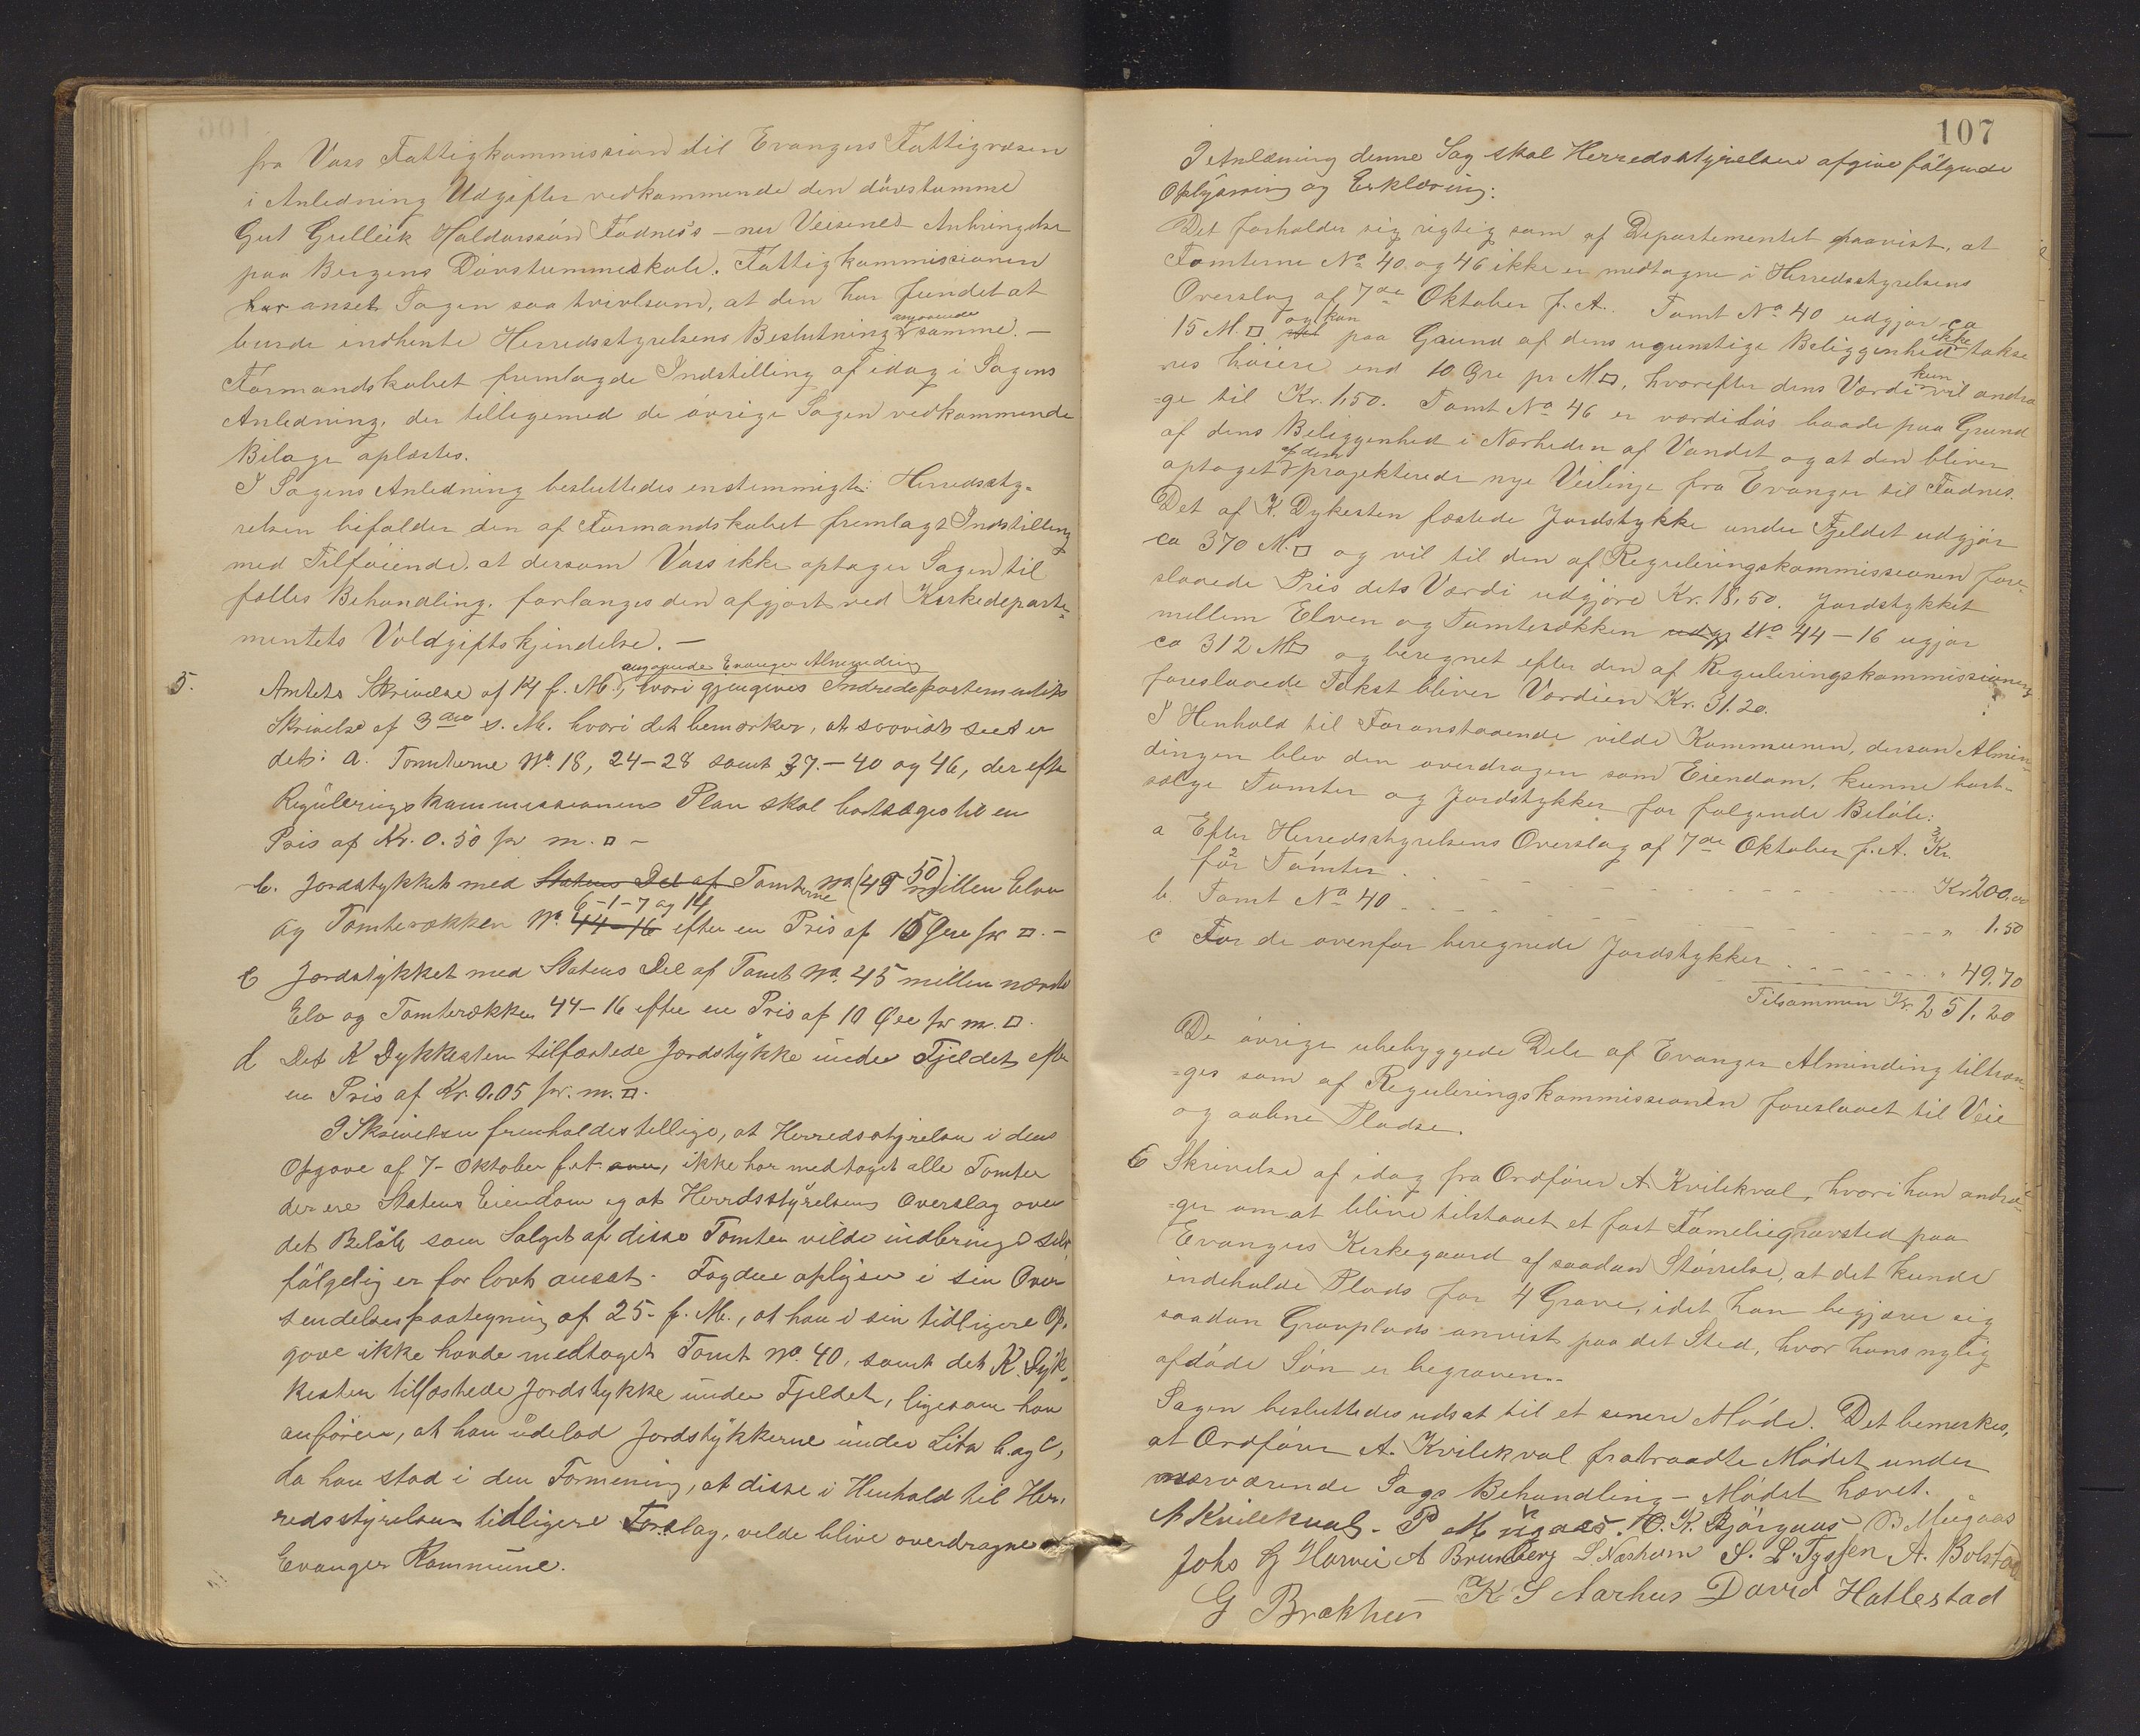 fra Voss Fattigkommission til Evangers Fattigvæsen
i Anledning Udgifter vedkommende den døvstumme
Gut Gulleik Haldorssøn Fadnes's - nu Veisenes Anbringelse
paa Bergens Døvstummeskole. Fattigkommissionen
har anset Sagen saa tvivlsom, at den har fundet at
burde indhente Herredsstyrelsens Beslutning angaaende samme. -
Formandskabet fremlagde Indstilling af idag i Sagens
Anledning, der tilligemed de øvrige Sagen vedkommende
Bilage oplæstes.
I Sagens Anledning besluttedes enstemmigt: Herredssty-
relsen bifalder den af Formandskabet fremlagte Indstilling
med Tilføiende, at dersom Voss ikke optager Sagen til
fælles Behandling, forlanges den afgjort ved Kirkedeparte-
mentets Voldgiftskjendelse. -
5. Amtets Skrivelse af 14 f. M., angaaende Evanger Alminding hvori gjengives Indredepartementets
Skrivelse af 3die s. M. hvori det bemærker, at saavidt seet er
det: a. Tomterne No. 18, 24-28 samt 37.-40 og 46, der efter
Reguleringskommissionens Plan skal bortsælges til en
Pris af Kr. 0.50 pr m. □ -
b. Jordstykket med Statens Del af Tomterne No (49 50) millem Elven
og Tomterækken No. 44-16 6-1-7 og 14 efter en Pris af 15 Øere pr □. -
c Jordstykket med Statens Del af Tomt No. 45 millem nævnte
Elv og Tomterækken 44-16 efter en Pris af 10 Øre pr m. □.
d Det K Dykkesten tilfæstede Jordstykke under Fjeldet efter
en Pris af Kr 0.05 pr. m. □.
I Skrivelsen fremholdes tillige, at Herredsstyrelsen i dens
Opgave af 7- Oktober f. A. over, ikke har medtaget alle Tomter
der ere Statens Eiendom og at Herrdsstyrelsens Overslag over
det Beløb som Salget af disse Tomter vilde indbringe selv
følgelig er for lavt ansat. Fogden oplyser i sin Over
sendelsespaategning af 25- f. M., at han i sin tidligere Op-
gave ikke havde medtaget Tomt No. 40, samt det K. Dyk-
kesten tilfæstede Jordstykke under Fjeldet, ligesom han
anfører, at han udelod Jordstykkerne under Litr b. og c,
da han stod i den Formening, at disse i Henhold til Her-
redsstyrelsens tidligere Forslag, vilde blive overdragne
Evanger Kommune.
107
I Anledning denne Sag skal Herredsstyrelsen afgive følgende
Oplysning og Erklæring:
Det forholder sig rigtig som af Departementet paavist, at
Tomterne No 40 og 46 ikke er medtagne i Herredsstyrelsens
Overslag af 7de Oktober f. A. Tomt No 40 udgjør ca
15 M. □ og kan paa Grund af dens ugunstige Beliggenhed ikke takse
res høiere end 10 Øre pr M □, hvorefter dens Værdi kun vil andra
-ge til Kr. 1,50. Tomt No 46 er værdiløs baade paa Grund
af dens Beliggenhed i Nærheden af Vandet og at den bliver
optaget af den projekterede nye Veilinje fra Evanger til Fadnes.
Det af K. Dykesten fæstede Jordstykke under Fjeldet udgjør
ca 370 M. □ og vil til den af Reguleringskommissionen fore-
slaaede Pris dets Værdi udgjøre Kr. 18,50. Jordstykket
mellem Elven og Tomterækken udgj No 44-16 ugjør
ca 312 M □ og beregnet efter den af Reguleringskommissionen
foreslaaede Takst bliver Værdien Kr. 31.20.
I Henhold til Foranstaaende vilde Kommunen, dersom Almin-
dingen blev den overdragen som Eiendom, kunne bort-
sælge Tomter og Jordstykker for følgende Beløb:
a Efter Herredsstyrelsens Overslag af 7de Oktober f. A. Kr.
for 2 Tomter . . . . Kr 200,00
b. Tomt No 40 . . . . " 1.50
c For de ovenfor beregnede Jordstykker . . . . " 49.70
Tilsammen Kr. 251.20
De øvrige ubebyggede Dele af Evanger Alminding tiltræn-
-ges som af Reguleringskommissionen foreslaaet til Veie
og aabne Pladse.
6 Skrivelse af idag fra Ordfører A. Kvilekval, hvori han andra-
-ger om at blive tilstaaet et fast Familiegravsted paa
Evangers Kirkegaard af saadan Størrelse, at det kunde
indeholde Plads for 4 Grave, idet han begjærer sig
saadan Gravplads anvist paa det Sted, hvor hans nylig
afdøde Søn er begraven..
Sagen besluttedes udsat til et senere Møde. Det bemerkes,
at Ordfører A. Kvilekval fratraadte Mødet under
nærværende Sags Behandling - Mødet hævet.
A Kvilekval - P Mugaas. O. K. Bjørgaas B Mugaas
Johs G Horvei A Brunborg L. Næsheim S. L. Tyssen A. Bolstad
G Brakhus K S Aarhus David Hatlestad